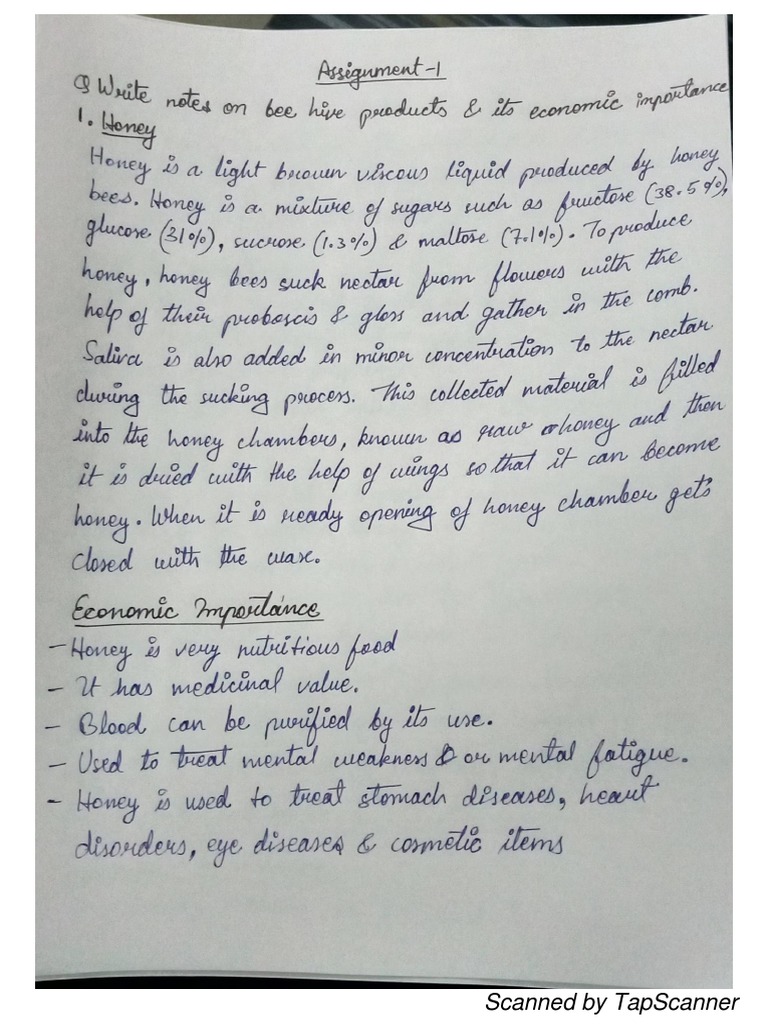 Assignment-1
Q Write notes on bee hive products & its economic importance
1. Honey
Honey is a light brown viscous liquid produced by honey
bees. Honey is a mixture of sugars such as fructose (38.5%),
glucose (31%), sucrose (1.3%) & maltose (7.1%). To produce
honey, honey bees suck nectar from flowers with the
help of their proboscis & gloss and gather in the comb.
Saliva is also added in minor concentration to the nectar
during the sucking process. This collected material is filled
into the honey chambers, known as raw honey and then
it is dried with the help of wings so that it can become
honey. When it is ready opening of honey chamber gets
closed with the wax.
Economic Importance
- Honey is very nutritious food
- It has medicinal value.
- Blood can be purified by its use.
- Used to treat mental weakness or mental fatigue.
- Honey is used to treat stomach diseases, heart
disorders, eye diseases & cosmetic items
Scanned by TapScanner